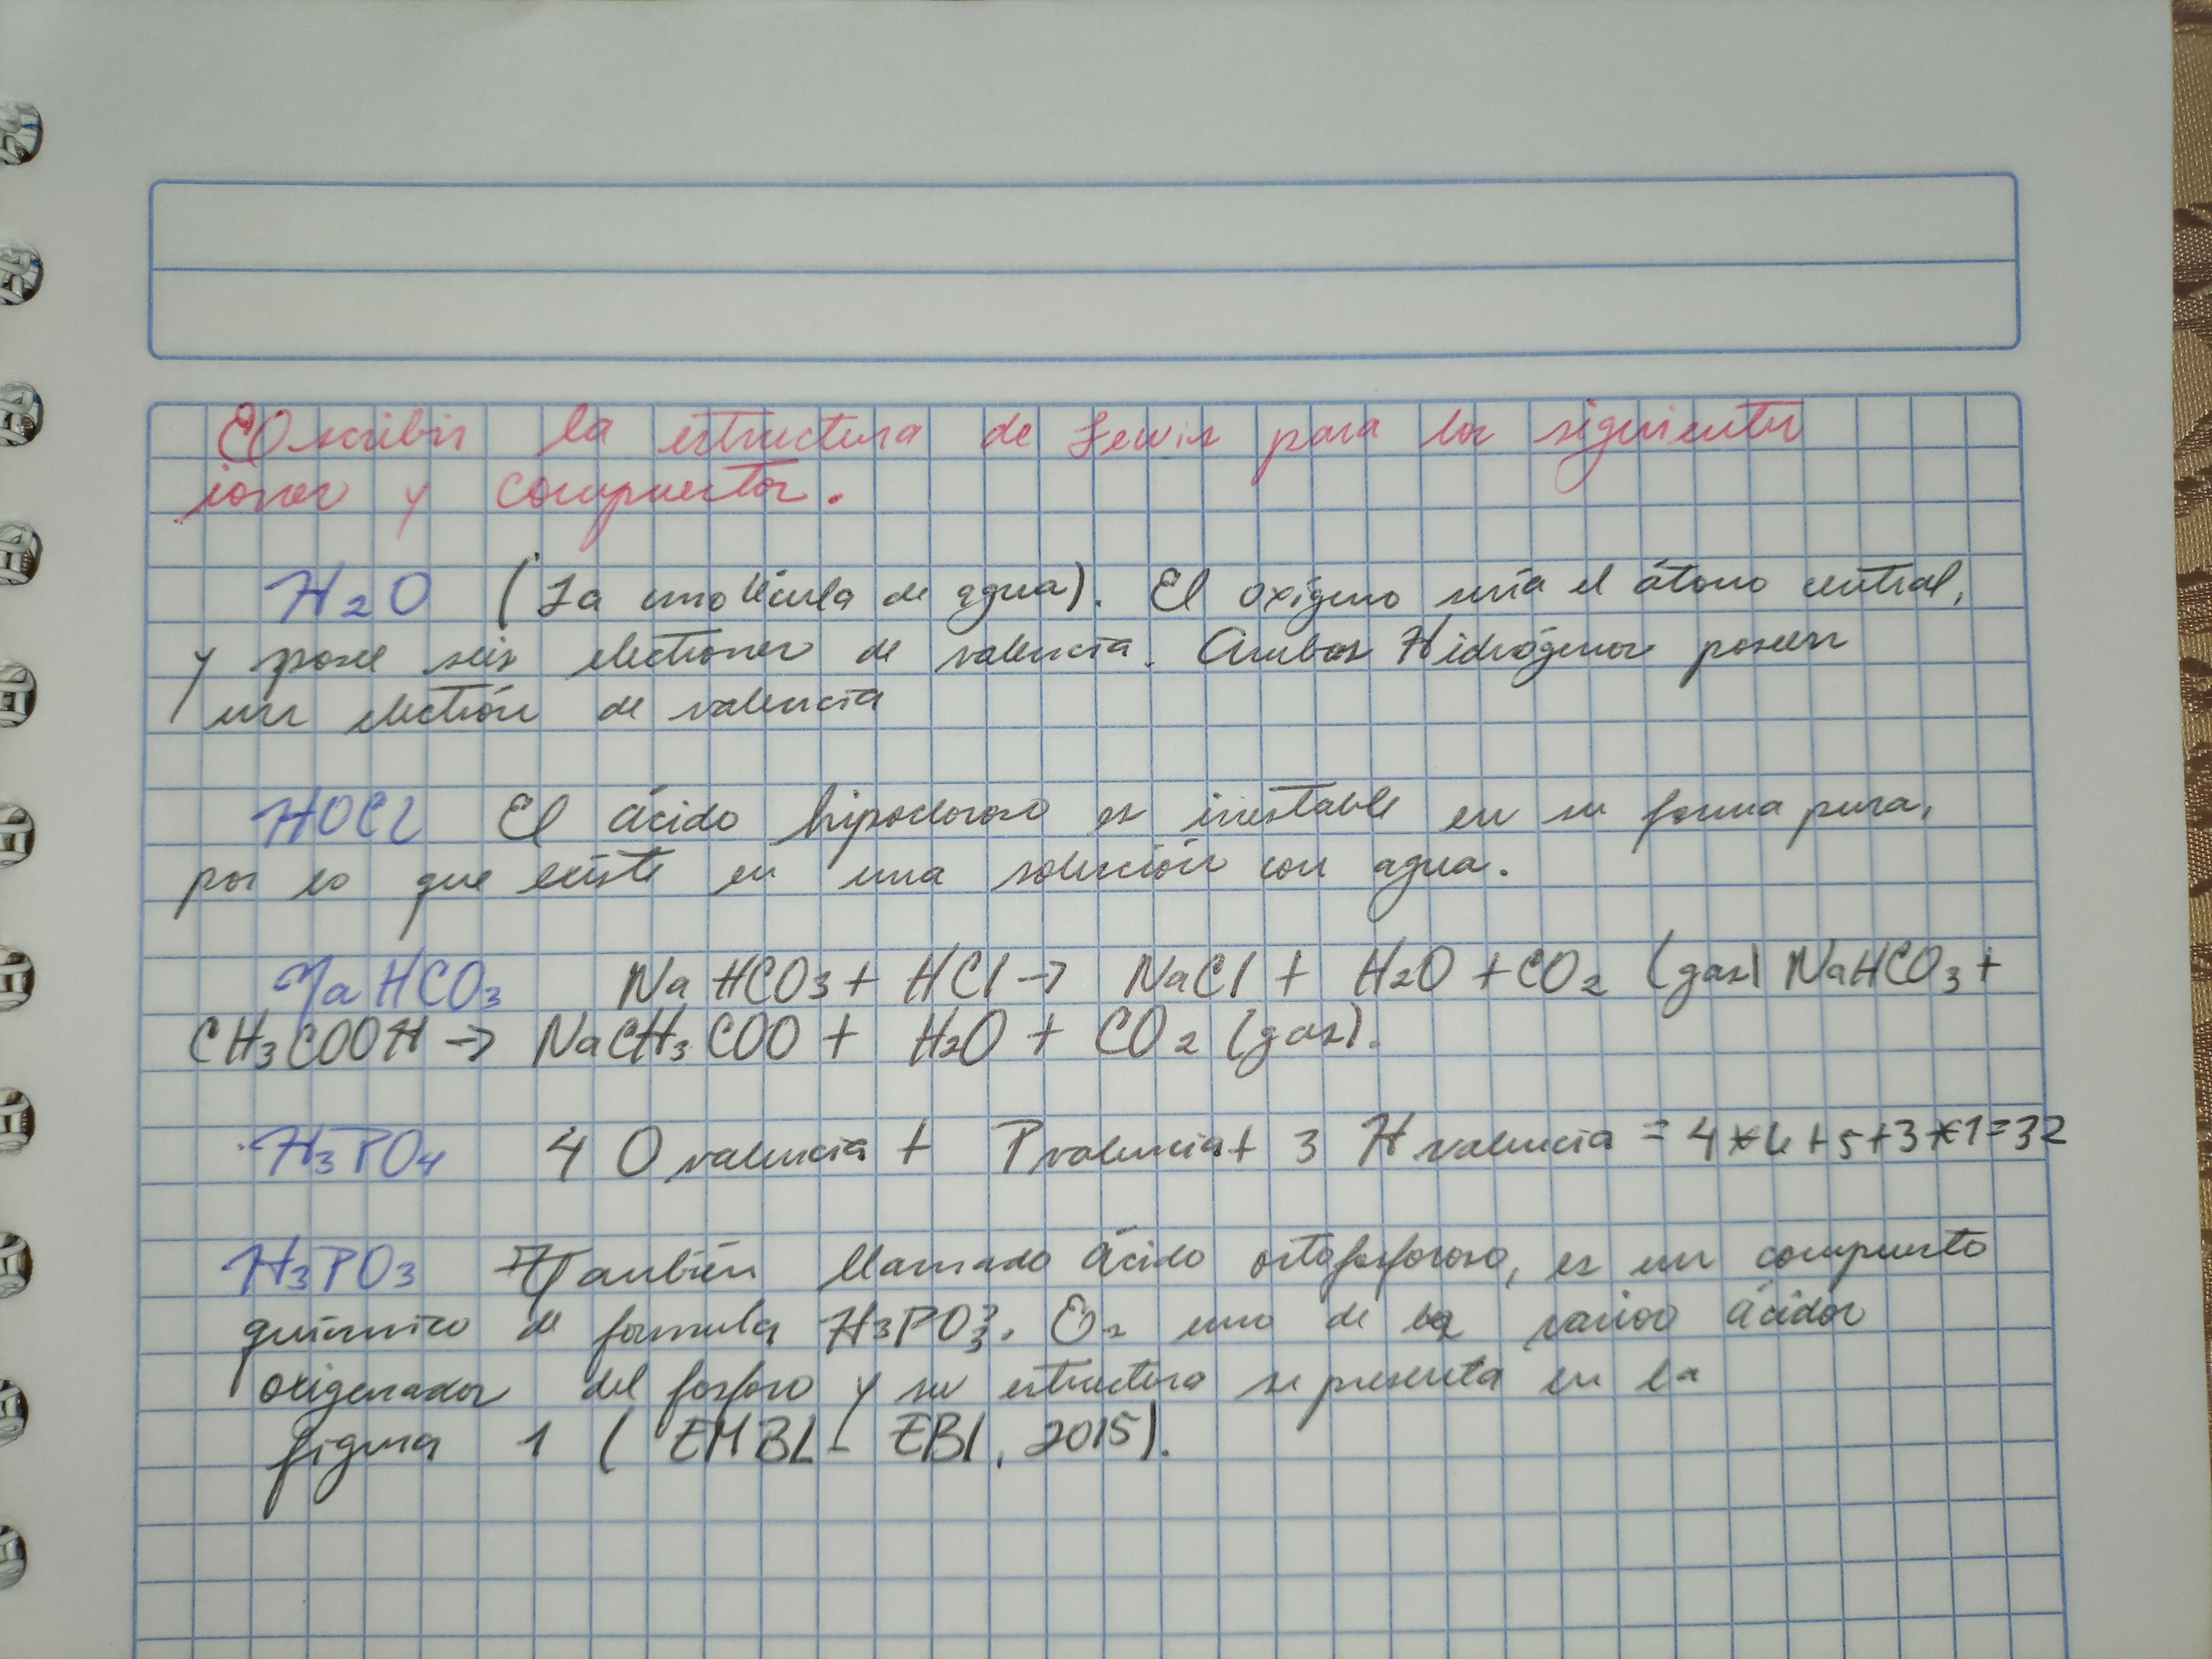 Escribir la estructura de Lewis para los siguientes
iones y compuestos.
H2O (La molécula de agua). El oxígeno sería el átomo central,
y posee seis electrones de valencia. Ambos Hidrógenos poseen
un electrón de valencia
HOCl El ácido hipocloroso es inestable en su forma pura,
por lo que existe en una solución con agua.
NaHCO3 NaHCO3 + HCl → NaCl + H2O + CO2 (gas) NaHCO3 +
CH3COOH → NaCH3COO + H2O + CO2 (gas).
H3PO4 4 O valencia + P valencia + 3 H valencia = 4*6+5+3*1=32
H3PO3 También llamado ácido ortofosforoso, es un compuesto
químico de formula H3PO3. Es uno de los varios ácidos
oxigenados del fosforo y su estructura se presenta en la
figura 1 (EMBL-EBI, 2015).